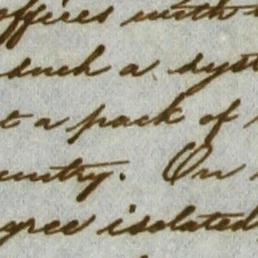 offices with
such a syst
t a pack of
untry. On
gree isolated